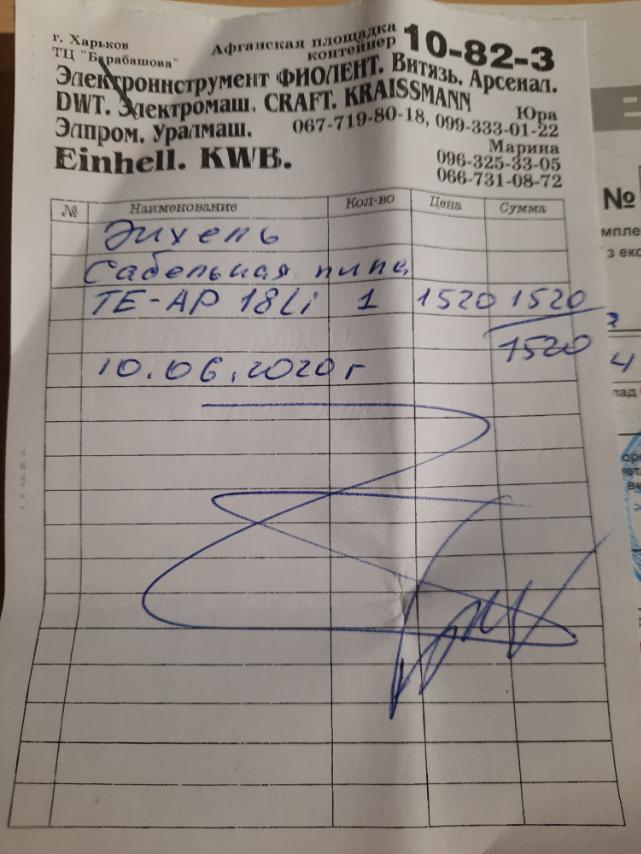 г. Харьков
ТЦ "Барабашова"
Афганская площадка
контейнер 10-82-3
Электроинструмент ФИОЛЕНТ. Витязь. Арсенал.
DWT. Электромаш. CRAFT. KRAISSMANN
Элпром. Уралмаш.
Юра
067-719-80-18, 099-333-01-22
Einhell. KWB.
Марина
096-325-33-05
066-731-08-72
№ Наименование Кол-во Цена Сумма
Эйхель
Сабельная пила
TE-AP 18Li 1 1520 1520
1520
10.06.2020г
№
мпле
з екс